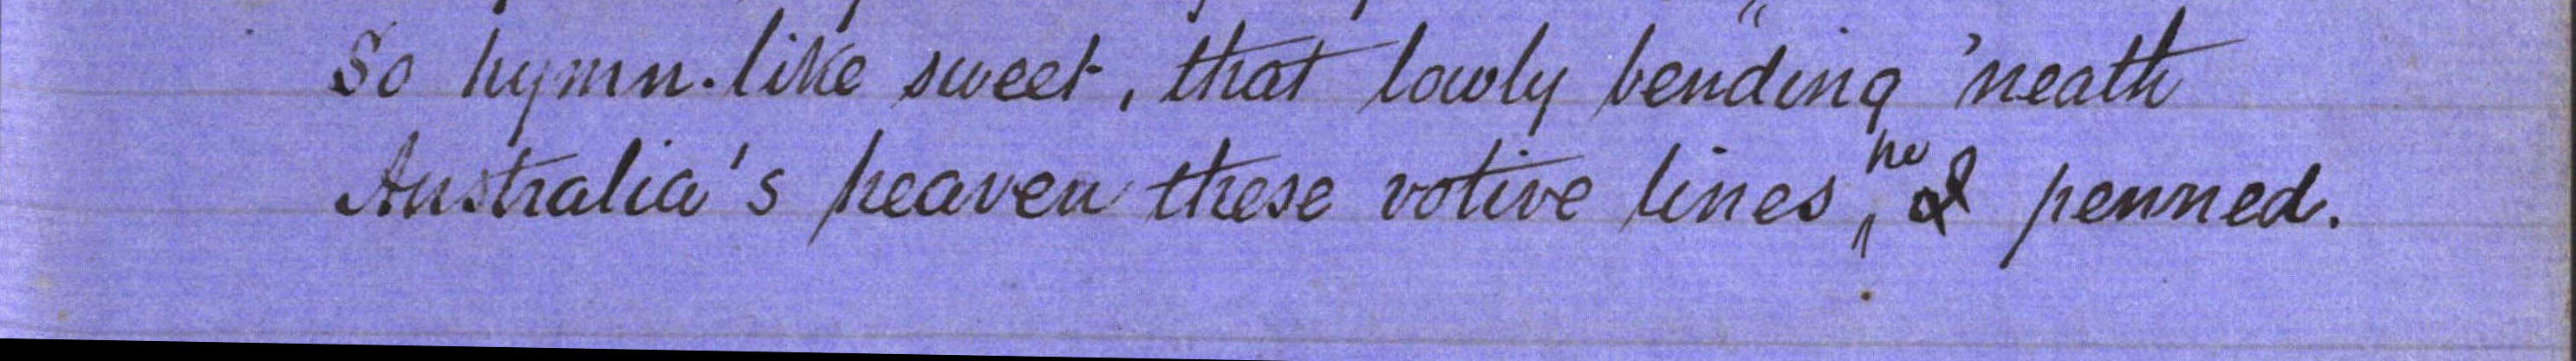 So hymn-like sweet, that lowly bending 'neath
Australia's heaven these votive lines he penned.